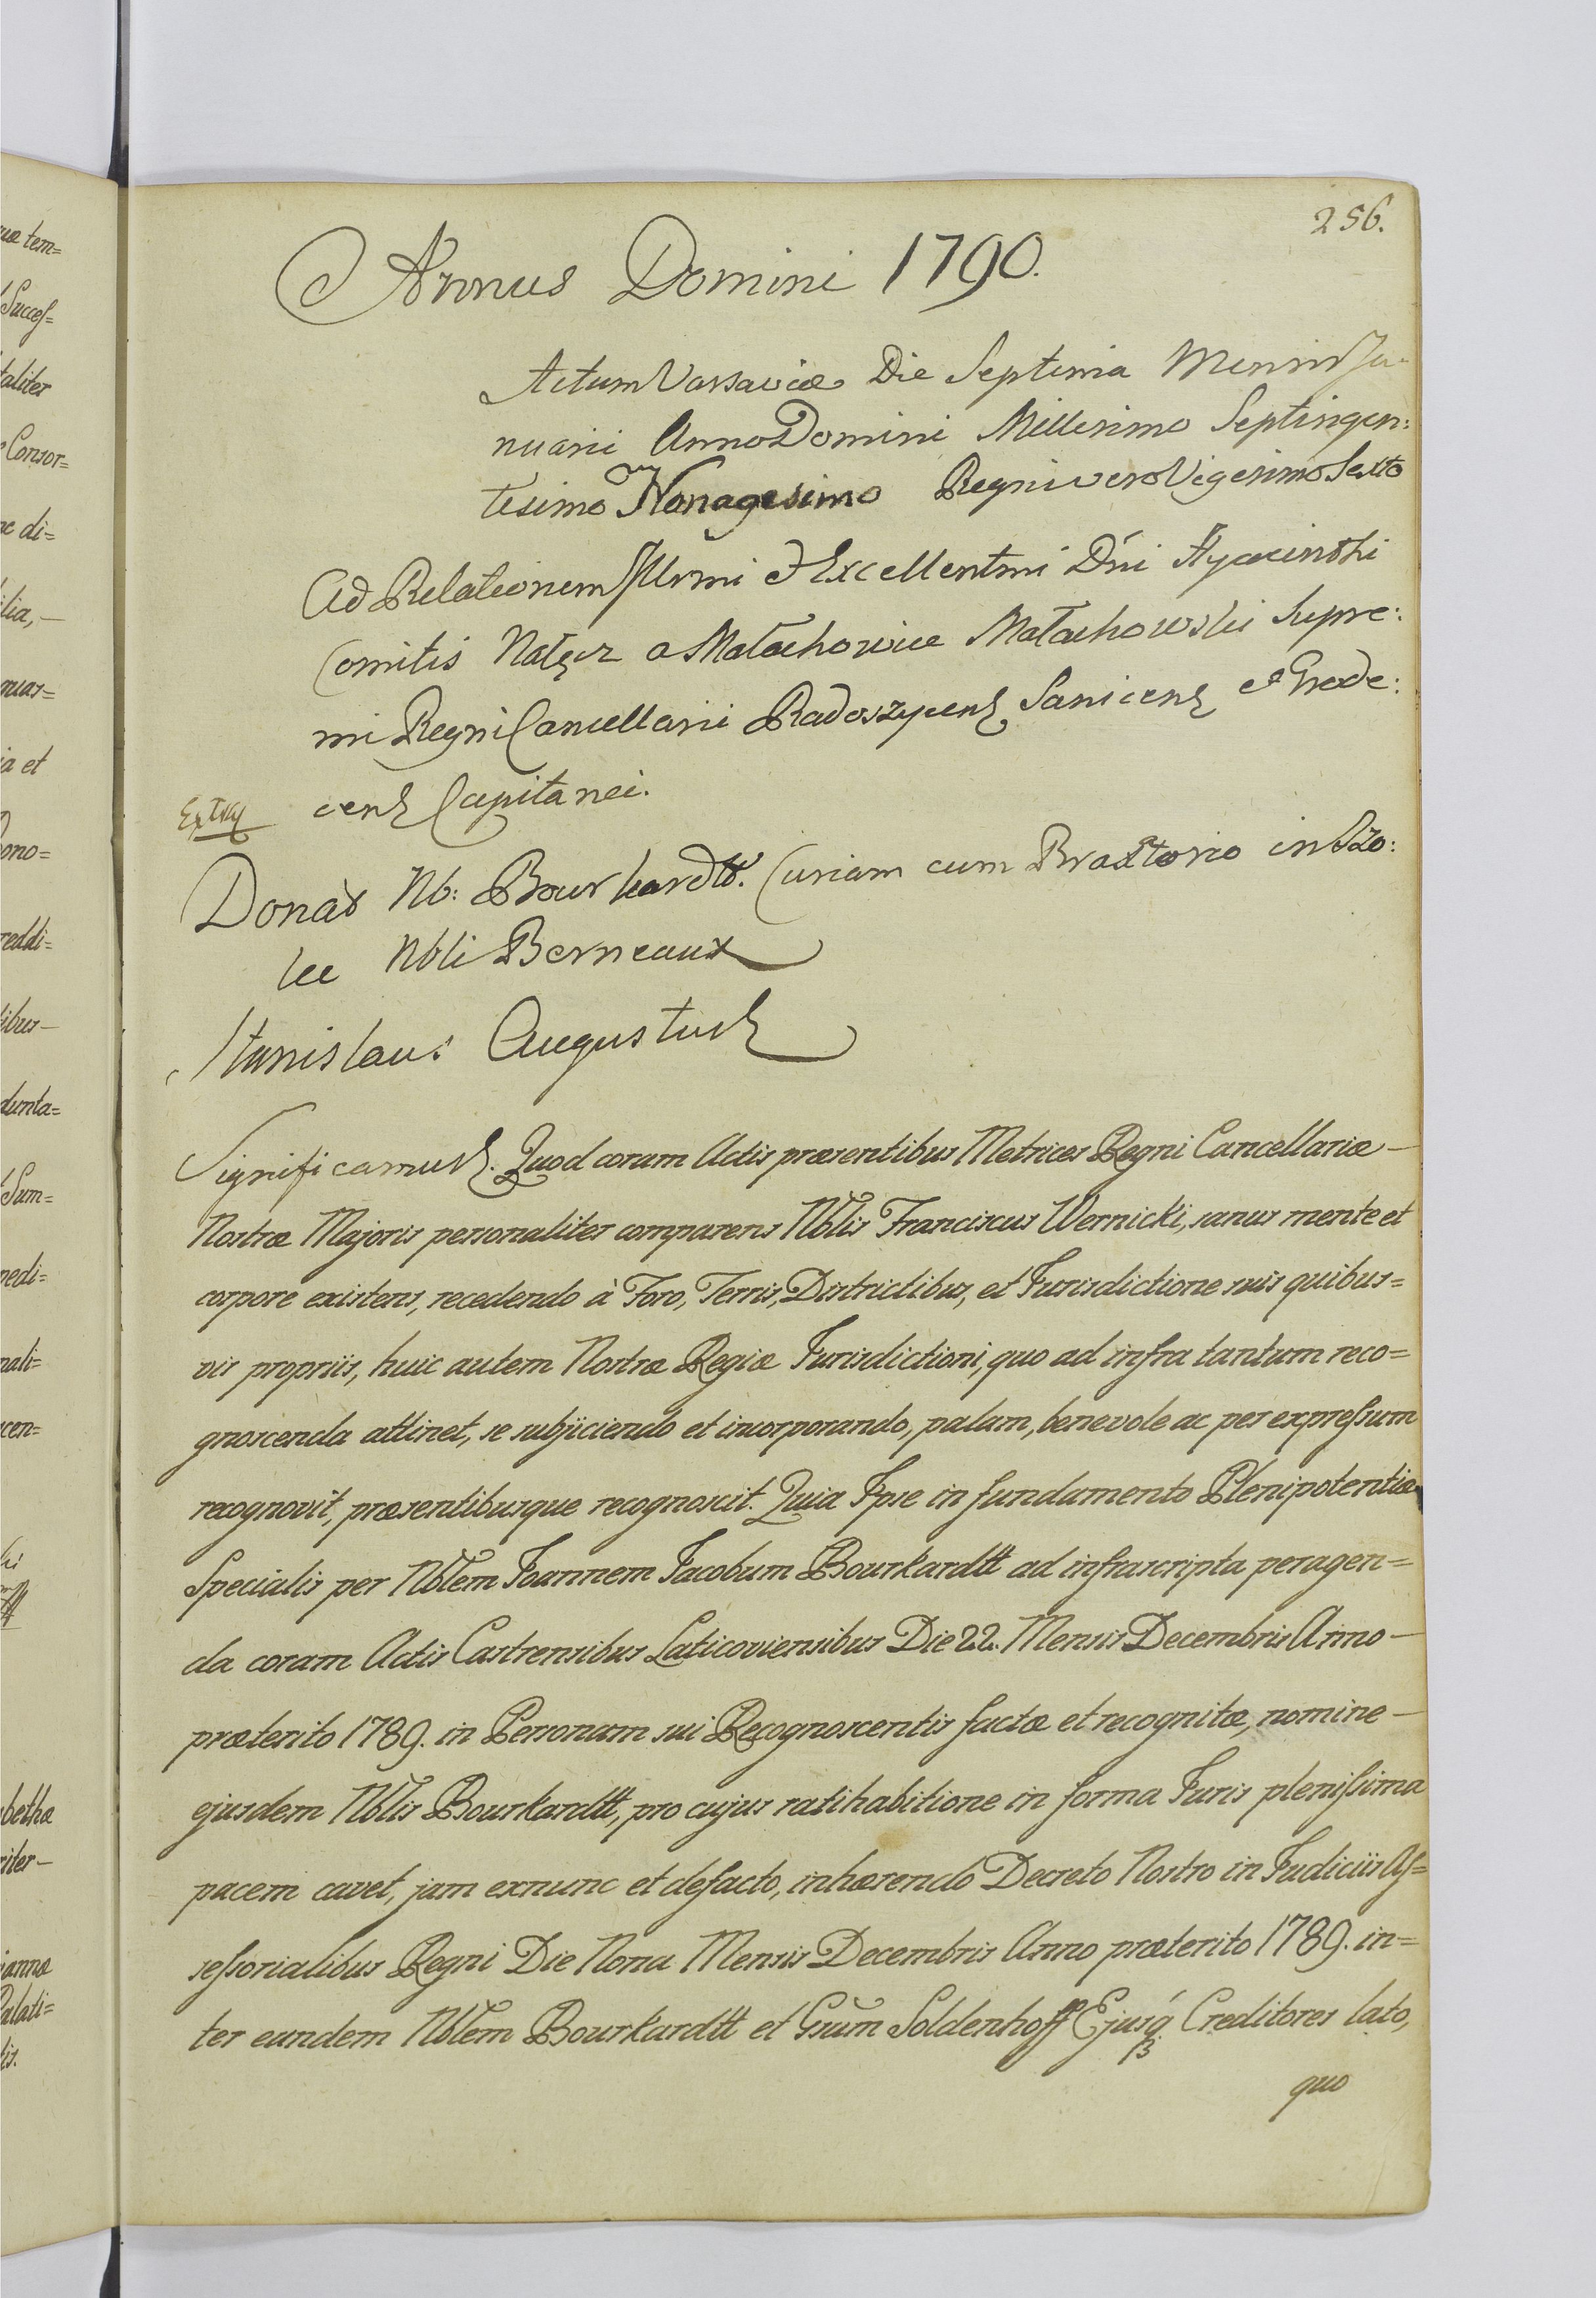 256.
Annus Domini 1790.
Actum Varsaviæ Die Septima Mensis Ja-
nuarii Anno Domini Millesimo Septingen:
tesimo Nonagesimo Regni vero Vigesimo Sexto
Ad Relationem Illrmi & Excellentmi Dni Hyacinthi
Comitis Nałęcz a Małachowice Małachowski Supre:
mi Regni Cancellarii Radoszycens Sanicens et Grode:
cens Capitanei.
Donat Nb: Bourkardtt. Curiam cum Braxtorio in Szo:
Nbli Berneaux
Stanislaus Augustus
Significamus. Quod coram Actis præsentibus Metrices Regni Cancellariæ —
Nostræ Majoris personaliter comparens Nblis Franciscus Wernicki, sanus mente et
corpore existens, recedendo à Foro, Terris, Districtibus, et Jurisdictione suis quibus=
vis propriis, huic autem Nostræ Regiæ Jurisdictioni, quo ad infra tantum reco=
gnoscenda attinet, se subjiciendo et incorporando, palam, benevole ac per expressum
recognovit, præsentibusque recognoscit. Quia Ipse in fundamento Plenipotentiæ
Specialis per Nblem Joannem Jacobum Bourkardtt ad infrascripta peragen=
da coram Actis Castrensibus Laticoviensibus Die 22. Mensis Decembris Anno —
præterito 1789. in Personam sui Recognoscentis factæ et recognitæ, nomine —
ejusdem Nblis Bourkardtt, pro cujus ratihabitione in forma Juris plenissima
pacem cavet, jam exnunc et defacto, inhærendo Decreto Nostro in Judiciis As=
sessorialibus Regni Die Nona Mensis Decembris Anno præterito 1789. in=
ter eundem Nblem Bourkardtt et Grum Soldenhoff Ejusq Creditores lato,
quo